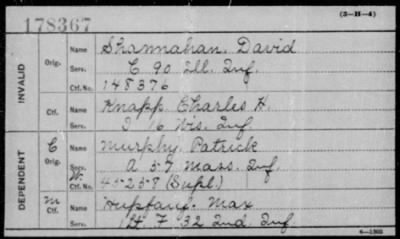 178367
(3-H-4)
INVALID
Orig. Name Shannahan, David
Serv. C 90 Ill. Inf.
Ctf. No. 148376
Ctf. Name Knapp, Charles H.
Serv. I 16 Wis. Inf
DEPENDENT
C Orig. Name Murphy, Patrick
Serv. A 57 Mass. Inf.
W. Ctf. No. 45258 (Supl.)
m Ctf. Name Hupfauf, Max
Serv. F 32 Ind. Inf